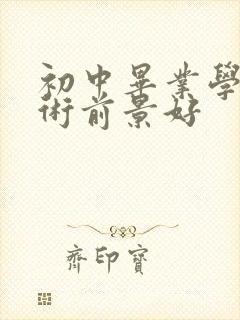 初中畢業學
術前景好
齊印寶